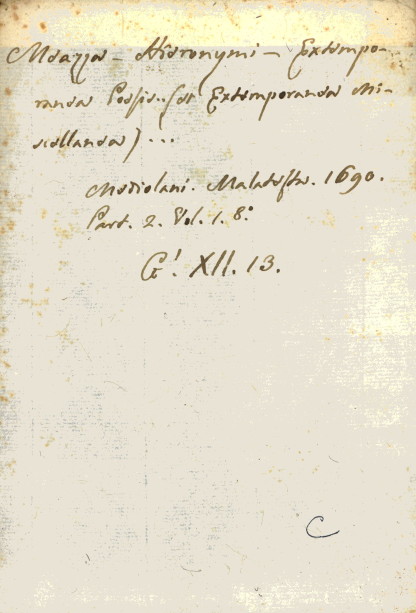 Meazza - Hieronymi - Extempo-
ranea Poesis.. (et Extemporanea Mi-
scellanea) ...
Mediolani. Malatesta. 1690.
Part. 2. Vol. 1. 8.°
G'. XII. 13.
C